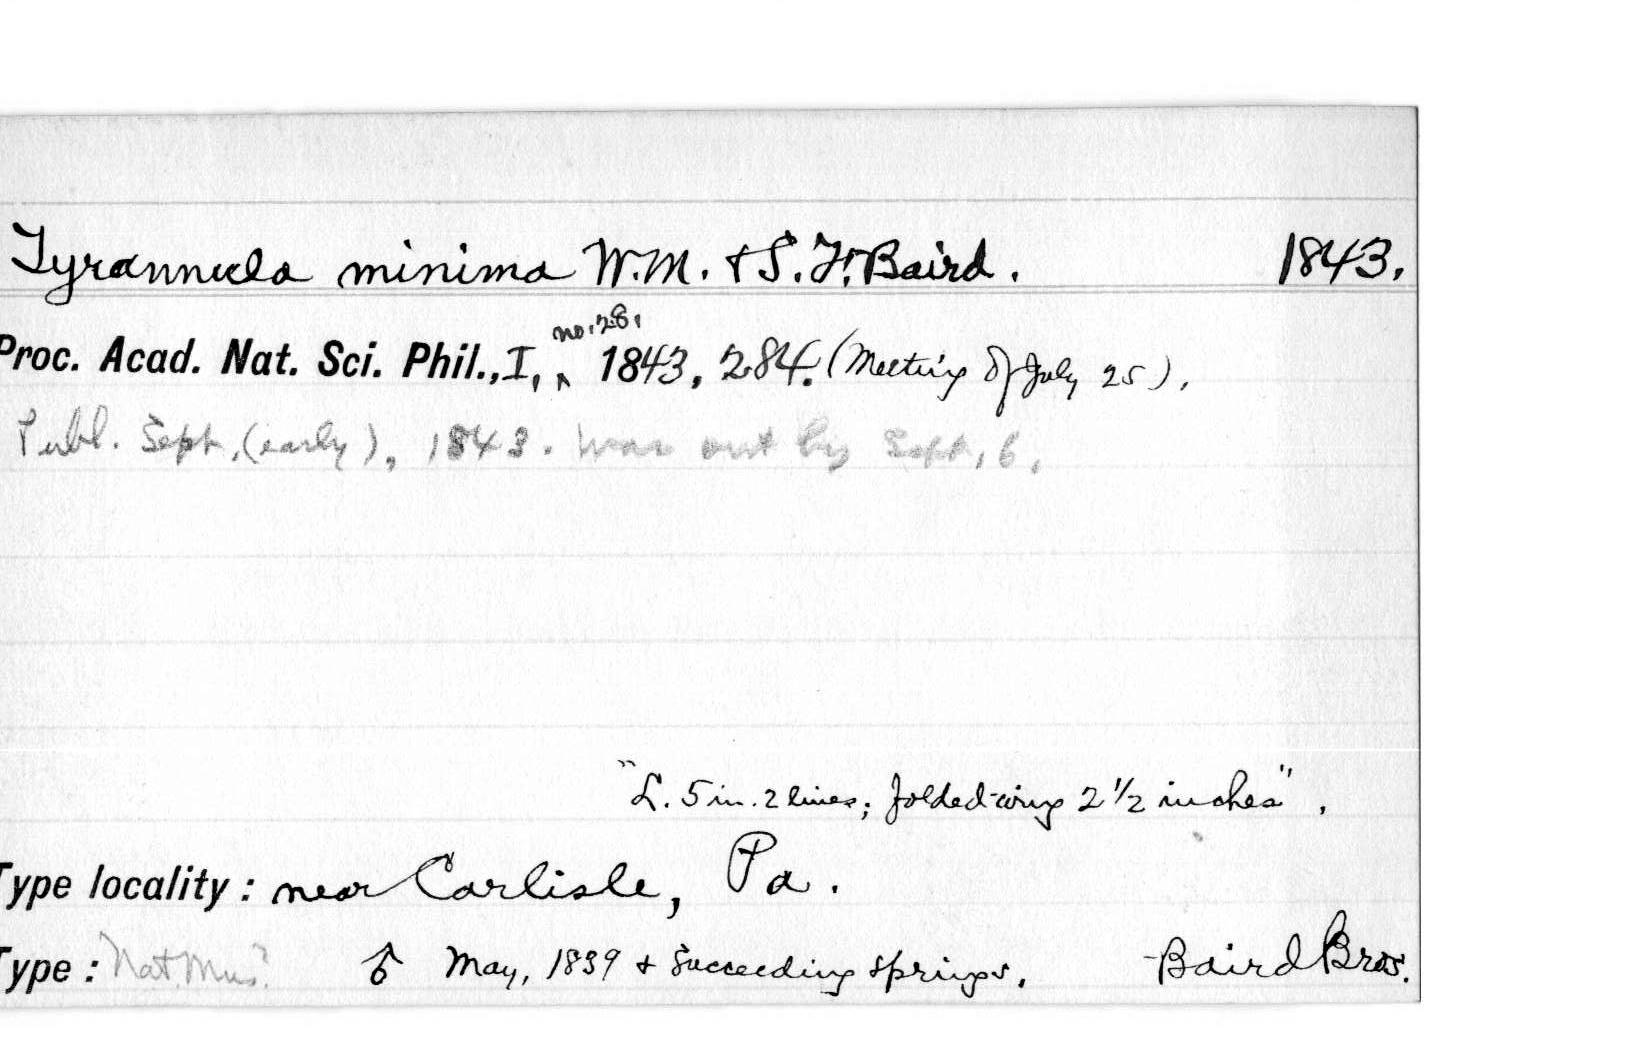 Tyrannula minima W.M. + S. F. Baird. 1843.
no. 28,
Proc. Acad. Nat. Sci. Phil., I, ^ 1843, 284. (Meeting of July 25).
Publ. Sept. (early), 1843. Was out by Sept. 6.
"L. 5 in. 2 lines; folded wing 2 1/2 inches".
Type locality: near Carlisle, Pa.
Type: Nat. Mus? ♂ May, 1839 + succeeding springs. Baird Bros.